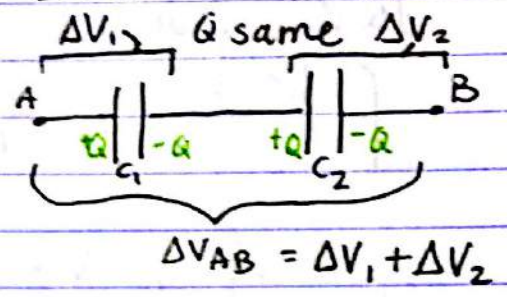 ΔV₁ Q same ΔV₂
A B
+Q -Q +Q -Q
C₁ C₂
ΔV_AB = ΔV₁ + ΔV₂